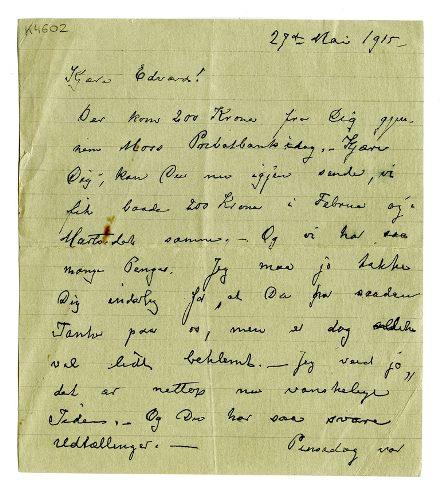 K4602
27de Mai 1915 –
Kjære Edvard!
Der kom 200 Krone fra Dig gjen-
nem Moss Privatbank idag. – Kjære
Dig, kan Du nu igjen sende, vi
fik baade 200 Krone i Februa og i
Marts det samme. – Og vi har saa
mange Penger. Jeg maa jo takke
Dig inderlig for, at Du har saadan
Tanke paa os, men er dog
vel lidt beklemt. – Jeg veed jo,
det er nettop nu vanskelige
Tider. – Og Du har saa svære
Udtællinger. – Pinsedag var